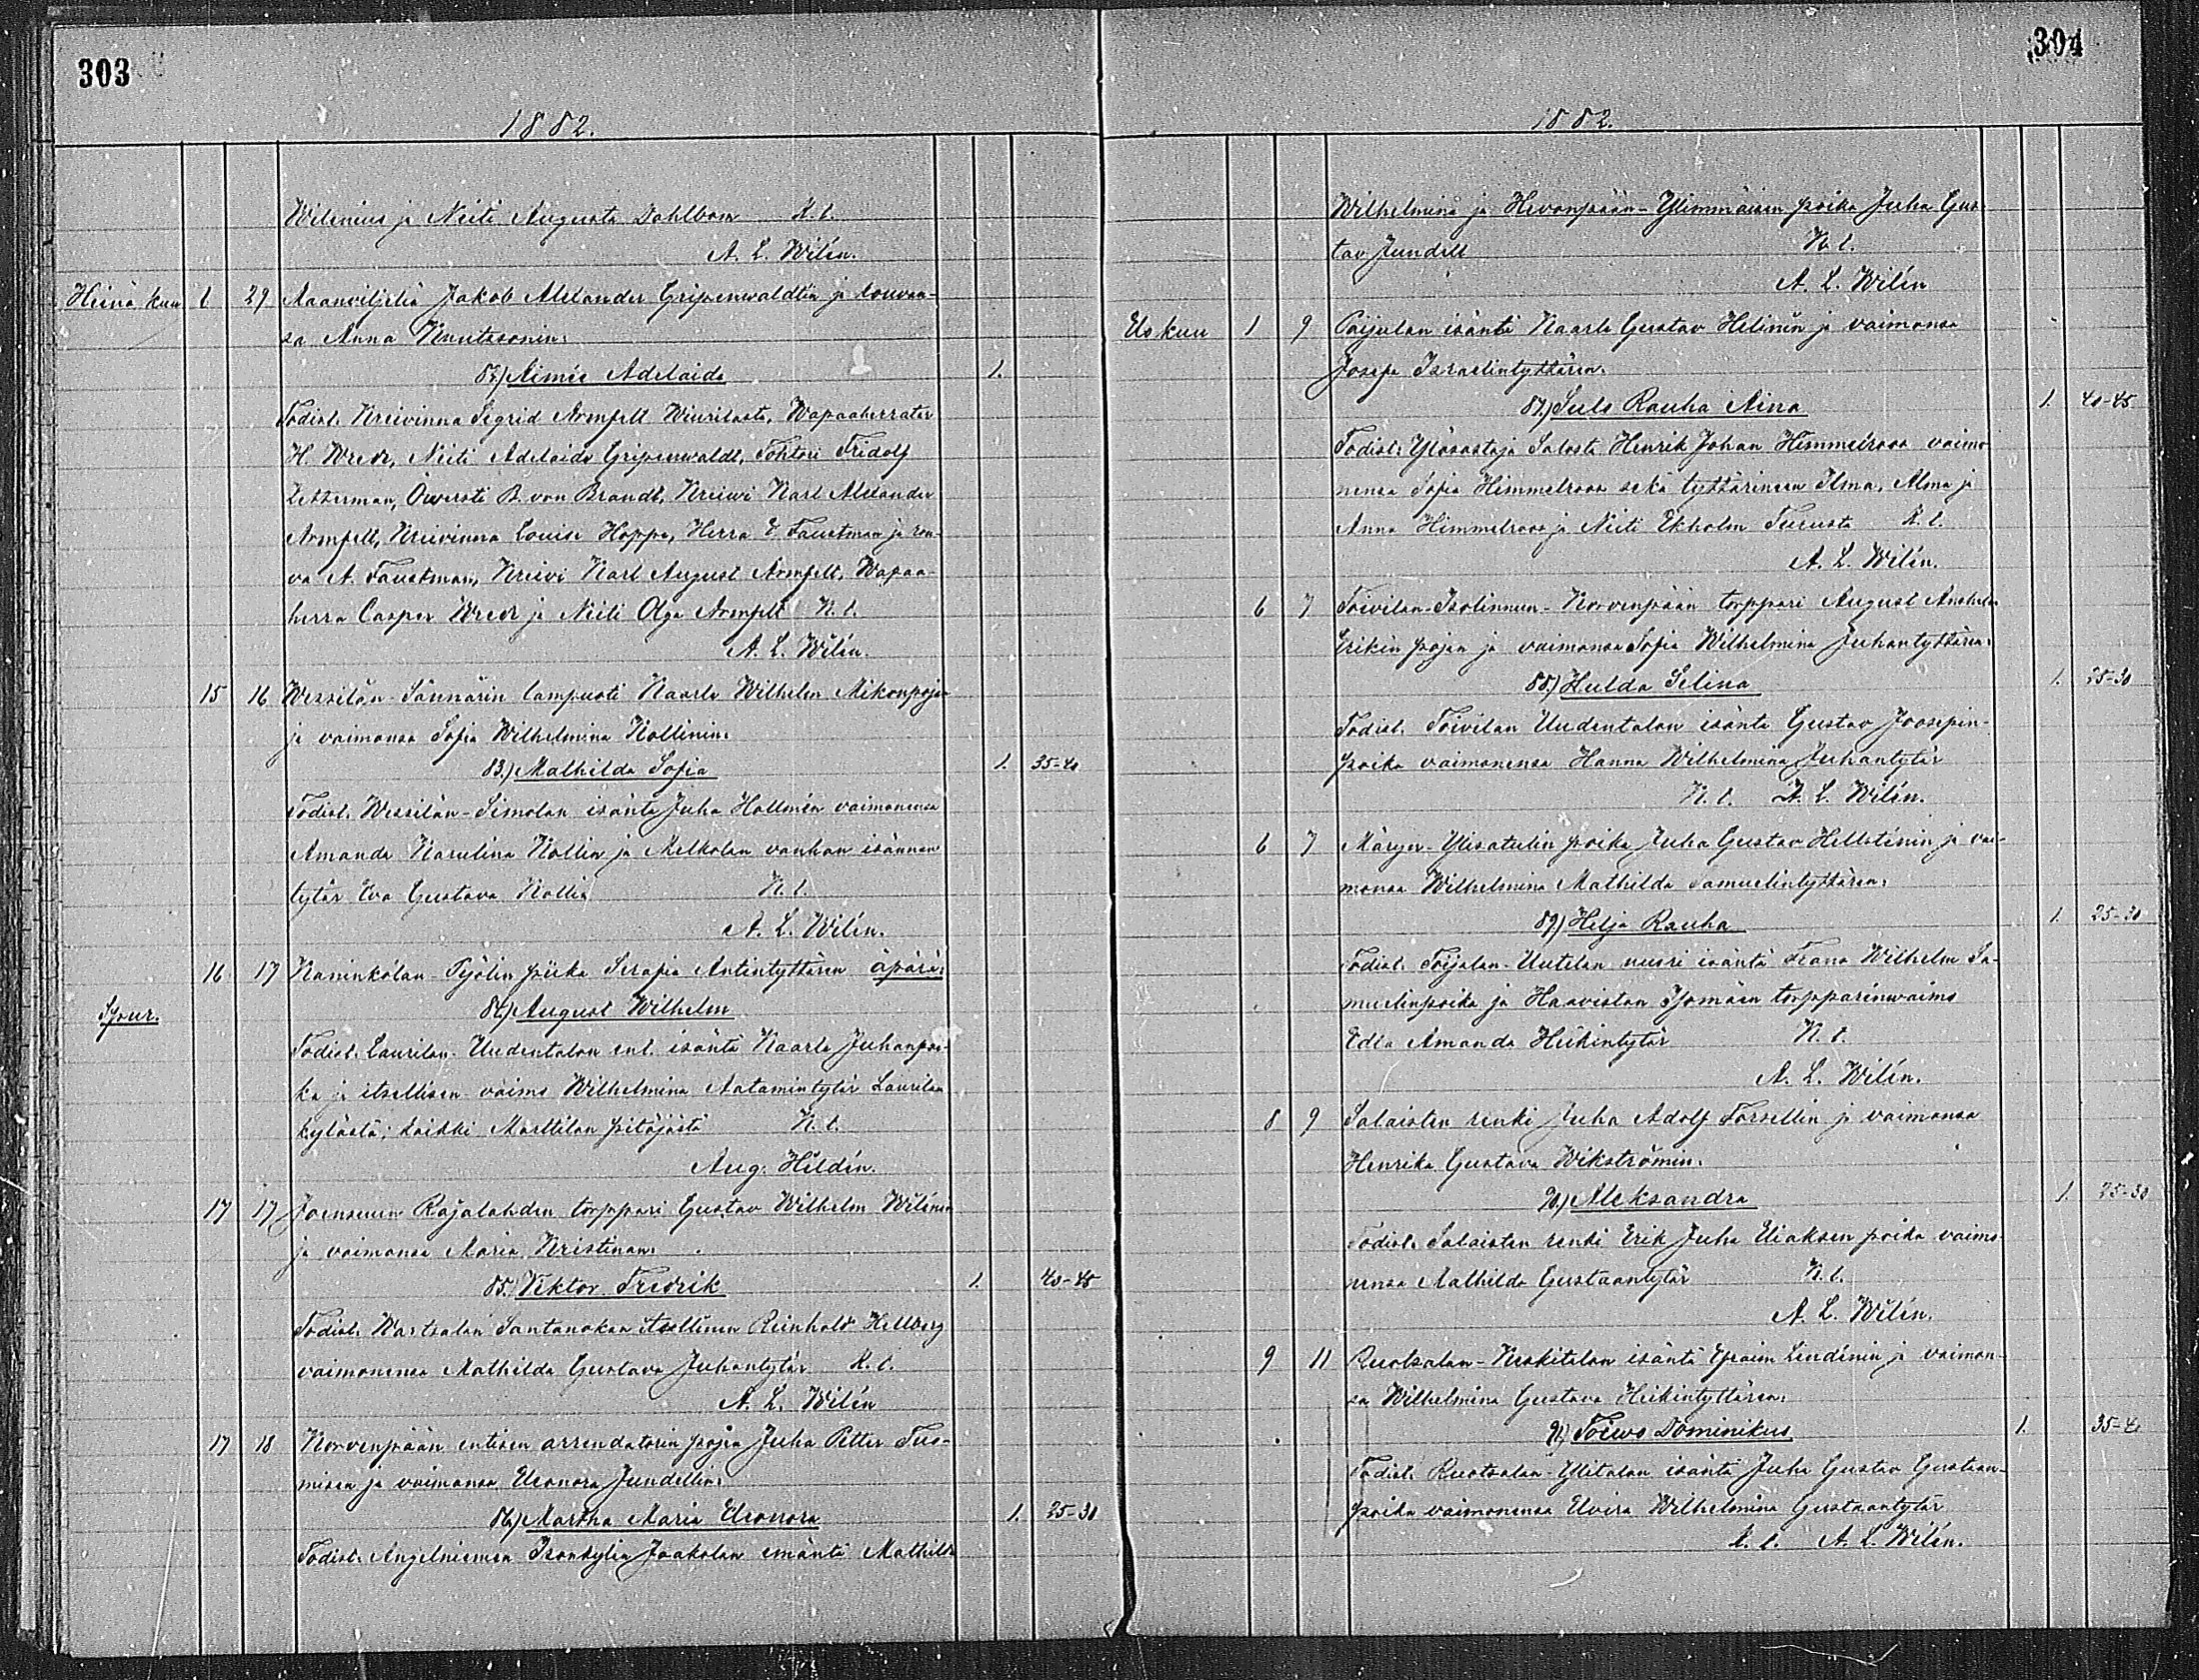 303
1882.
Wilenius ja Neiti Augusta Dahlbom K. l.
A. L. Wilén.
Heinä kuu 1 29 Maanviljeliä Jakob Alexander Gripenwaldtin ja rouvan-
sa Anna Knutssonin:
82.) Aimée Adelaide 1.
Todist. Kreivinna Sigrid Armfelt Wiurilasta, Wapaaherratar
H. Wrede, Neiti Adelaide Gripenwaldt, Tohtori Fridolf
Zetterman, Öwersti B. von Brandt, Kreiwi Karl Alexander
Armfelt, Kreivinna Louise Hoppe, Herra E. Faustman ja rou-
va A. Faustman, Kreivi Karl August Armfelt, Wapaa-
herra Casper Wrede ja Neiti Olga Armfelt K. l.
A. L. Wilén.
15 16 Wessilän-Sännärin lampuoti Kaarle Wilhelm Mikonpojan
ja vaimonsa Sofia Wilhelmina Kollinin:
83.) Mathilda Sofia 1. 35-40
Todist. Wessilän-Simolan isäntä Juha Hollmén vaimonensa
Amanda Karolina Kollin ja Melkolan vanhan isännän
tytär Eva Gustava Kollin K. l.
A. L. Wilén.
16 17 Kaninkólan Pyölin piika Serafia Antintyttären äpärä:
84.) August Wilhelm
Spur.
Todist. Laurilan-Uudentalon ent. isäntä Kaarle Juhanpoi-
ka ja itsellisen vaimo Wilhelmina Aatamintytär Laurilan
kylästä; kaikki Marttilan pitäjästä K. l.
Aug. Hildén.
17 17 Joensuun Rajalahden torppari Gustav Wilhelm Wilénin
ja vaimonsa Maria Kristinan:
85. Viktor Fredrik 1. 40-45
Todist. Wartsalan Santanokan itsellinen Reinhold Hellberg
vaimonensa Mathilda Gustava Juhantytär K. l.
A. L. Wilén
17 18 Korvenpään entisen arrendatorin pojan Juha Petter Tuo-
misen ja vaimonsa Eleonora Jundellin:
86.) Martha Maria Eleonora 1. 25-30
Todist. Angelniemen Isonkylän Jaakolan emäntä Mathilda
304
1882.
Wilhelmina ja Hevonpään-Ylimmäisen poika Juha Gus-
tav Jundell K. l.
A. L. Wilén
Elokuu 1 9 Paijulan isäntä Kaarle Gustav Helinin ja vaimonsa
Josefa Israelintyttären:
87.) Sulo Rauha Aina 1. 40-45
Todist: Ylösostaja Salosta Henrik Johan Himmelroos vaimo-
nensa Sofia Himmelroos sekä tyttärineen Ilma, Alma ja
Anna Himmelroos ja Neiti Ekholm Turusta K. l.
A. L. Wilén.
6 7 Toivilan-Isolinnun-Korvenpään torppari August Anshelm
Erikin pojan ja vaimonsa Sofia Wilhelmina Juhantyttären:
88.) Hulda Selina 1. 25-30
Todist. Toivilan Uudentalon isäntä Gustav Joosepin-
poika vaimonensa Hanna Wilhelmina Juhantytär
K. l. A. L. Wilén.
6 7 Märyn-Ylisatulin poika Juha Gustav Hellsténin ja vai-
monsa Wilhelmina Mathilda Samuelintyttären:
89.) Helja Rauha 1. 25-30
Todist. Toijalan-Uutelan nuori isäntä Frans Wilhelm Sa-
muelinpoika ja Haaviston torpparinvaimo
Edla Amanda Heikintytär K. l.
A. L. Wilén.
8 9 Salaisten renki Juha Adolf Forsellin ja vaimonsa
Henrika Gustava Wikströmin:
90.) Aleksandra 1. 25-30
Todist. Salaisten renki Erik Juha Eliaksen poika vaimo-
nensa Mathilda Gustaantytär K. l.
A. L. Wilén.
9 11 Ruotsalan-Keskitalon isäntä Efraim Lindénin ja vaimon-
sa Wilhelmina Gustava Heikintyttären:
91.) Toiwo Dominikus 1. 35-40
Todist. Ruotsalan-Ylitalon isäntä Juha Gustav Gustaan-
poika vaimonensa Elvira Wilhelmina Gustaantytär
K. l. A. L. Wilén.